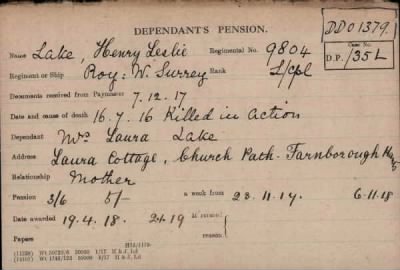 DEPENDANT'S PENSION.
DD01379.
Name Lake, Henry Leslie Regimental No. 9804
Case No.
D.P. /35 L
Regiment or Ship Roy: W. Surrey Rank L/cpl
Documents received from Paymaster 7.12.17
Date and cause of death 16.7.16 Killed in Action
Dependant Mrs Laura Lake
Address Laura Cottage, Church Path. Farnborough Hants
Relationship Mother
Pension 3/6 5/- a week from 23.11.17. 6.11.18
Date awarded 19.4.18. 2.1.19 If correct:
Papers reason